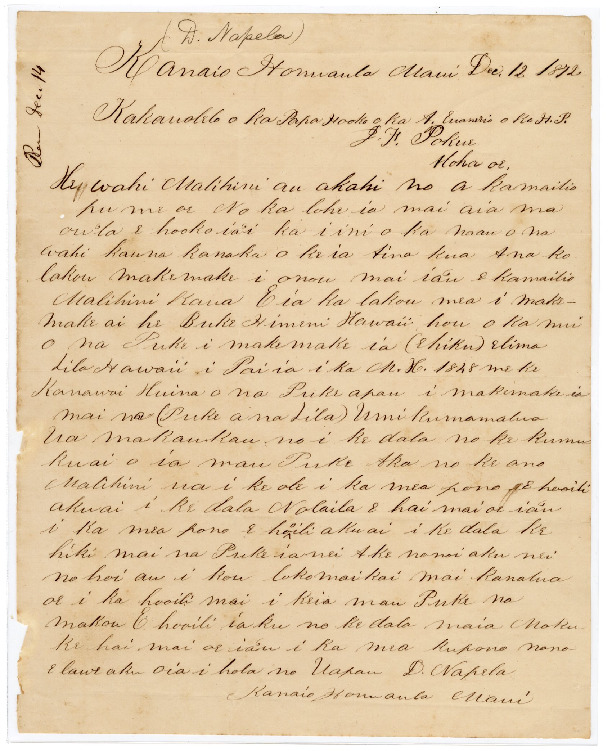 (D. Napela)
Rec Dec. 14
Kanaio Honuaula Maui Dec. 12 1872
Kakauolelo o ka Papa Hooko o ka A. Euanelio o ko H. P.
J. F. Pokue
Aloha oe,
He wahi Malihini au akahi no a kamailio
pu me oe No ka lohe ia mai aia ma
ou la e hookoiai ka iini o ka naau o na
wahi kauna kanaka o keia aina kua Ana ko
lakou makemake i onou mai ia'u e kamailio
Malihini kaua Eia ka lakou mea i make-
make ai he Buke Himeni Hawaii hou o ka nui
o na Puke i makemake ia (Ehiku) elima
Lila Hawaii i Pai ia i ka M. H. 1828 me ke
Kanawai Huina o na Puke apau i makemake ia
mai na (Puke a na Lila) Umikumamalua
Ua makaukau no i ke dala no ke kumu
kuai o ia mau Puke Aka no ke ano
Malihini ua i ke ole i ka mea pono E hooili
akuai i ke dala Nolaila e hai mai oe ia'u
i ka mea pono e hooili akuai i ke dala ke
hiki mai na Puke ianei Ake nonoi aku nei
no hoi au i kou lokomaikai mai kanalua
oe i ka hooili mai i keia mau Puke na
makou E hooili iaku no ke dala maia Moku
ke hai mai oe ia'u i ka mea kupono nona
e lawe aku oia i hola no Uapau D. Napela
Kanaio Honuaula Maui